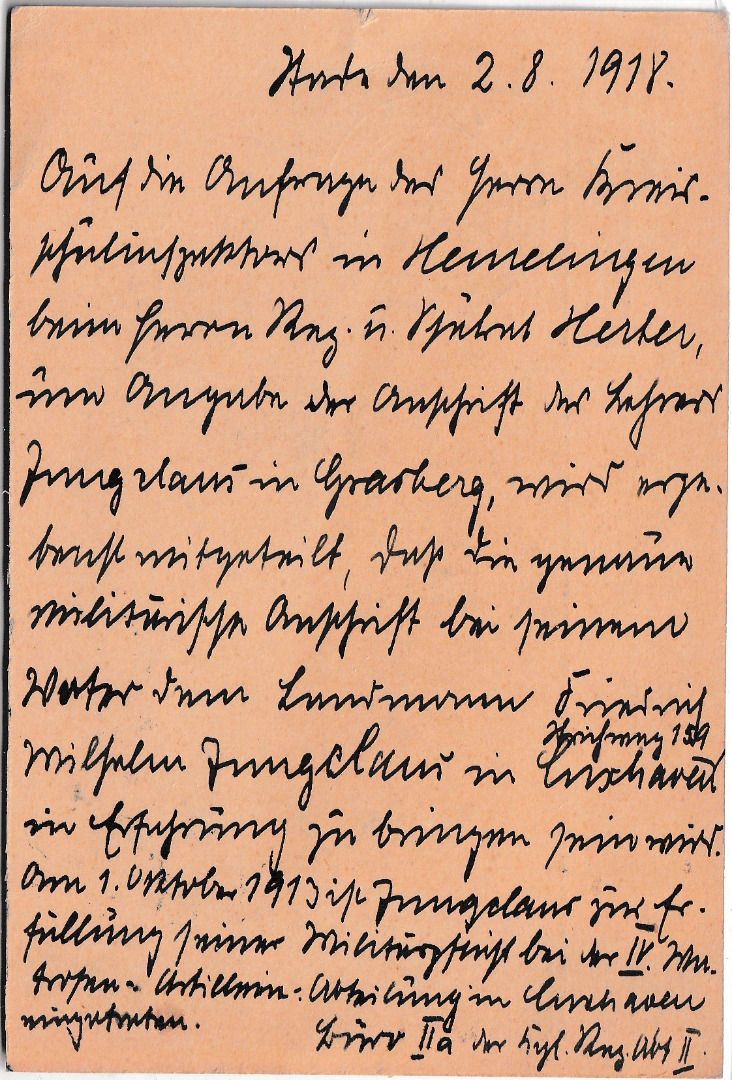 Stade den 2.8.1918.
Auf die Anfrage des Herrn Kreis-
schulinspektors in Hemelingen
beim Herrn Reg. u. Schulrat Herber,
um Angabe der Anschrift des Lehrers
Jungclaus in Grasberg, wird erge-
benst mitgeteilt, daß die genaue
militärische Anschrift bei seinem
Vater dem Landmann Friedrich
Strichweg 159
Wilhelm Jungclaus in Cuxhaven
in Erfahrung zu bringen sein wird.
Am 1. Oktober 1913 ist Jungclaus zur Er-
füllung seiner Militärpflicht bei der IV. Ma-
trosen-Artillerie-Abteilung in Cuxhaven
eingetreten.
Büro IIa der Kgl. Reg. Abt II.